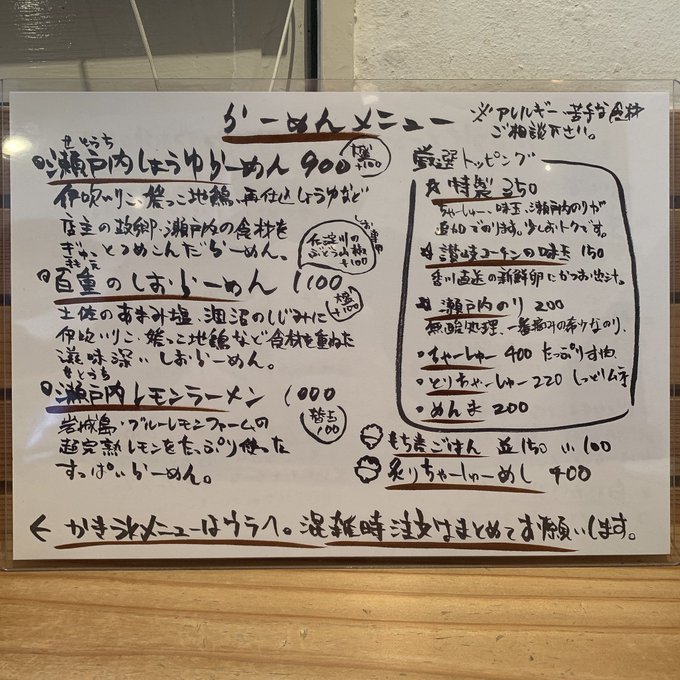 らーめんメニュー
※アレルギー・苦手な食材
ご相談下さい。
せとうち
瀬戸内しょうゆらーめん 900
大盛
+100
伊吹いりこ、媛っこ地鶏、再仕込しょうゆなど
店主の故郷・瀬戸内の食材を
ぎゅぎゅっと つめこんだらーめん。
しお専用
仁淀川の
ぶどう山椒
+100
百重のしおらーめん 1100
大盛
+100
土佐のあまみ塩、涸沼のしじみに
伊吹いりこ・媛っこ地鶏など食材を重ねた
滋味深いしおらーめん。
せとうち
瀬戸内レモンラーメン 1000
替玉
100
岩城島・ブルーレモンファームの
超完熟レモンをたっぷり使った
すっぱいらーめん。
厳選トッピング
特製 350
ちゃーしゅー、味玉、瀬戸内のりが
追加でのります。少しおトクです。
讃岐コーチンの味玉 150
香川直送の新鮮卵にかつお出汁。
瀬戸内のり 200
無酸処理、一番摘みの希少なのり。
ちゃーしゅー 400 たっぷり
とりちゃーしゅー 220 しっとりムネ
めんま 200
もち麦ごはん 並150 小100
炙りちゃーしゅーめし 400
← かき氷メニューはウラへ。混雑時注文はまとめてお願いします。